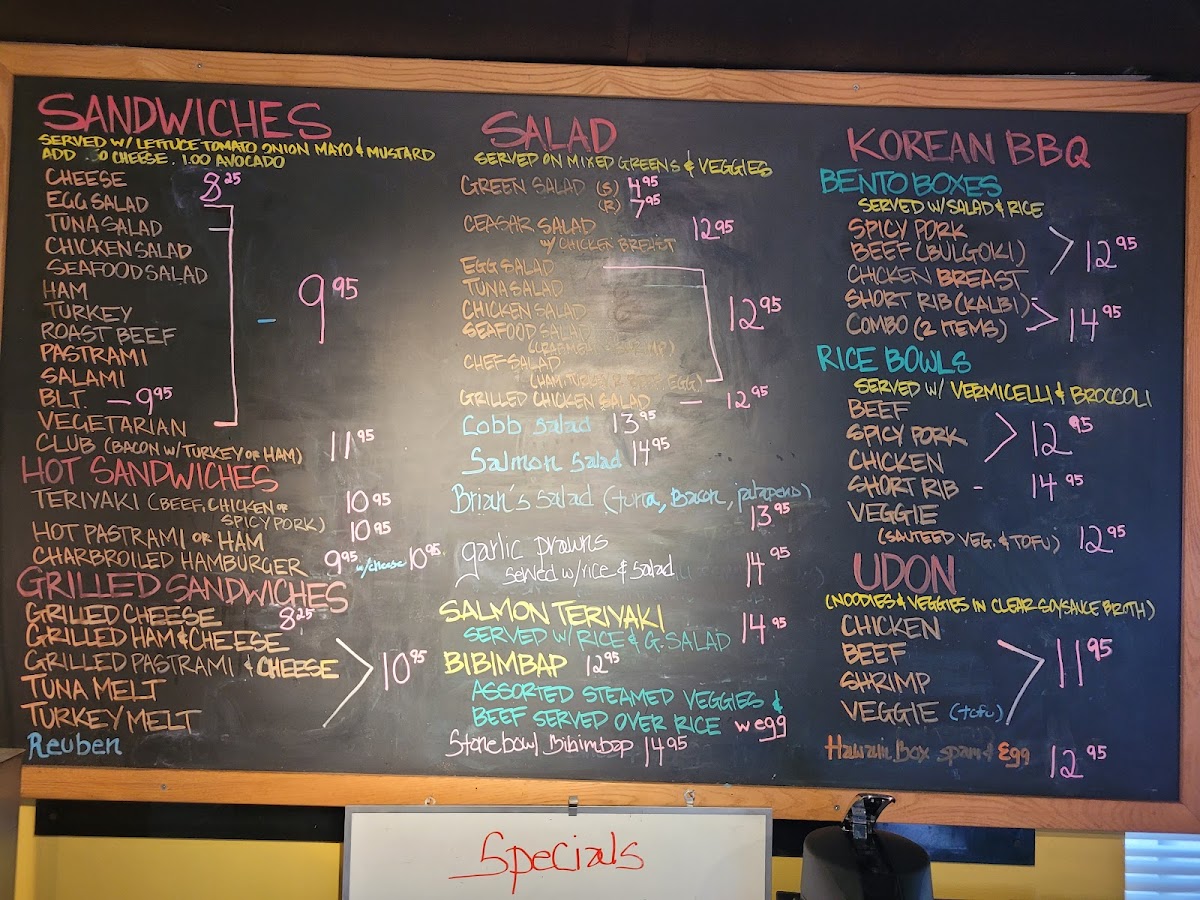 SANDWICHES
SERVED W/ LETTUCE TOMATO ONION MAYO & MUSTARD
ADD CHEESE . 1.00 AVOCADO
CHEESE 8.25
EGG SALAD
TUNA SALAD
CHICKEN SALAD
SEAFOOD SALAD
HAM - 9.95
TURKEY
ROAST BEEF
PASTRAMI
SALAMI
BLT. - 9.95
VEGETARIAN
CLUB (BACON W/TURKEY OR HAM) 11.95
HOT SANDWICHES
TERIYAKI (BEEF, CHICKEN OR 10.95
SPICY PORK)
HOT PASTRAMI OR HAM 10.95
CHARBROILED HAMBURGER 9.95 w/cheese 10.95
GRILLED SANDWICHES
GRILLED CHEESE 8.25
GRILLED HAM & CHEESE
GRILLED PASTRAMI & CHEESE 10.95
TUNA MELT
TURKEY MELT
Reuben
SALAD
SERVED ON MIXED GREENS & VEGGIES
GREEN SALAD (S) 4.95
(R) 7.95
CEASAR SALAD 12.95
W/ CHICKEN BREAST
EGG SALAD
TUNA SALAD
CHICKEN SALAD 12.95
SEAFOOD SALAD
CHEF SALAD
(HAM, TURKEY EGG)
GRILLED CHICKEN SALAD - 12.95
Cobb Salad 13.95
Salmon Salad 14.95
Brian's Salad (tuna, Bacon, jalapeno)
13.95
garlic prawns
served w/rice & salad 14.95
SALMON TERIYAKI 14.95
SERVED W/ RICE & G. SALAD
BIBIMBAP 12.95
ASSORTED STEAMED VEGGIES &
BEEF SERVED OVER RICE w egg
Stonebowl Bibimbap 14.95
KOREAN BBQ
BENTO BOXES
SERVED W/ SALAD & RICE
SPICY PORK
BEEF (BULGOKI) 12.95
CHICKEN BREAST
SHORT RIB (KALBI)
COMBO (2 ITEMS) 14.95
RICE BOWLS
SERVED W/ VERMICELLI & BROCCOLI
BEEF
SPICY PORK 12.95
CHICKEN
SHORT RIB - 14.95
VEGGIE
(SAUTEED VEG. & TOFU) 12.95
UDON
(NOODLES & VEGGIES IN CLEAR SOYSANCE BROTH)
CHICKEN
BEEF 11.95
SHRIMP
VEGGIE (tofu)
Hawaiin Box spam & Egg 12.95
Specials